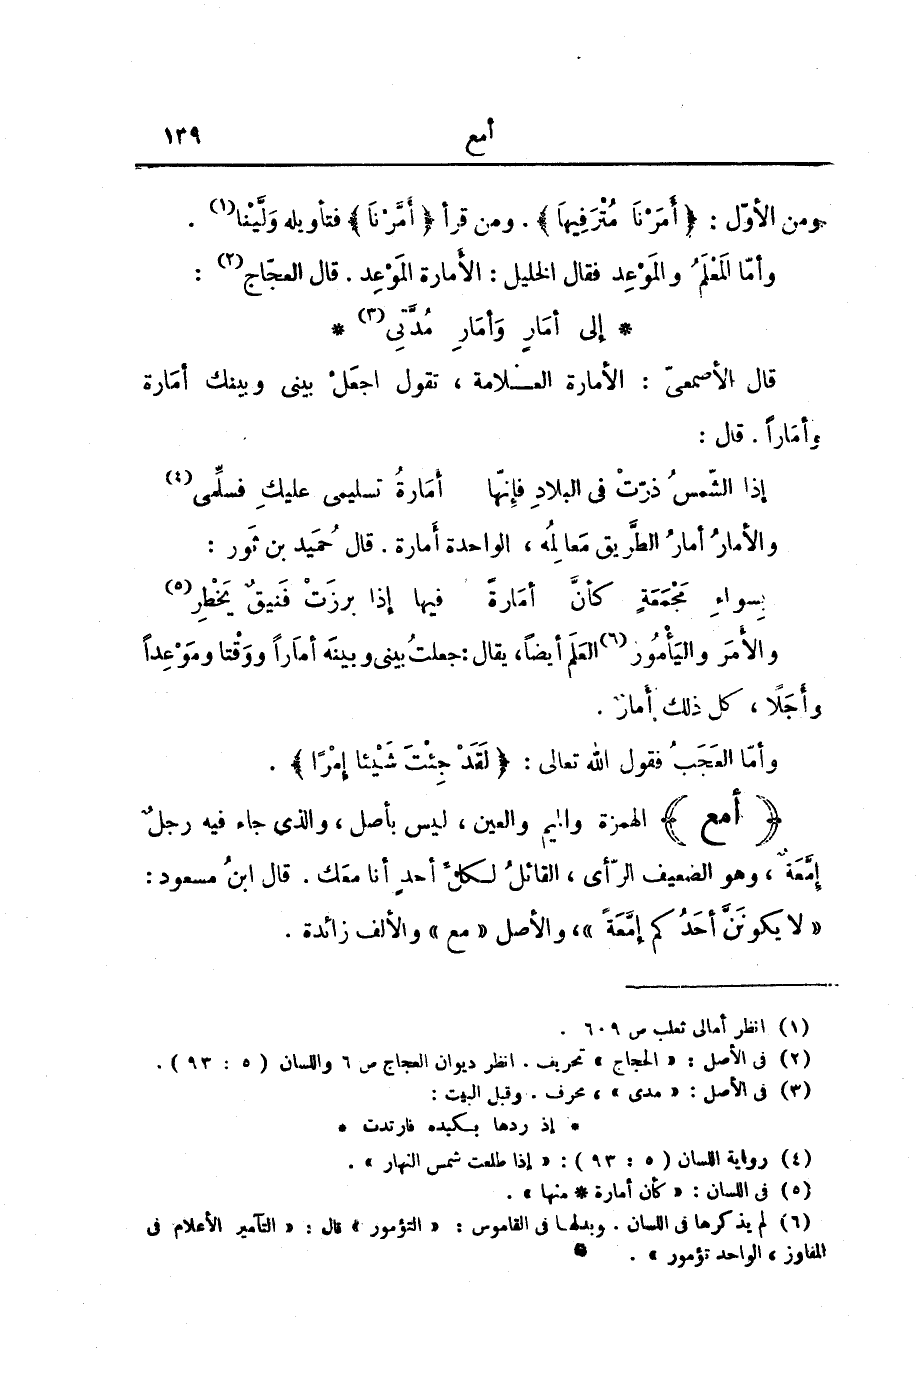 أمع ١٣٩
ومن الأوّل : ﴿ أَمَرْنَا مُتْرَفِيهَا ﴾ . ومن قرأ ﴿ أَمَّرْنَا ﴾ فتأويله وَلَّيْنا(١) .
وأمّا المَعْلَمُ والمَوْعِد فقال الخليل : الأَمارة المَوْعِد . قال العجّاج(٢) :
* إلى أمَارٍ وَأمَارِ مُدَّتِى(٣) *
قال الأصمعىّ : الأمارة العلامة ، تقول اجعَلْ بينى وبينك أمَارة
وأمَاراً . قال :
إذا الشّمسُ ذرّتْ فى البلادِ فإِنّها أمَارةُ تسليمى عليكِ فسلِّمى(٤)
والأمارُ أمارُ الطَّريق مَعالِمُه ، الواحدة أَمارة . قال حُمَيد بن ثَور :
بِسواءِ مَجْمَعَةٍ كأنَّ أمَارةً فيها إذا برزَتْ فَنيقٌ يَخْطِر(٥)
والأَمَر واليَأْمُور(٦) العَلَم أيضاً، يقال : جعلتُ بينى وبينَه أمَاراً ووَقْتا ومَوْعِداً
وأَجَلًا ، كل ذلك أَمارٌ .
وأمّا العَجَبُ فقول الله تعالى : ﴿ لَقَدْ جِئْتَ شَيْئا إمْرًا ﴾ .
﴿ أمع ﴾ الهمزة والميم والعين ، ليس بأصل ، والذي جاء فيه رجلٌ
إمَّعَةٌ ، وهو الضعيف الرّأى ، القائلُ لكلِّ أحدٍ أنا معَك . قال ابنُ مسعود :
« لا يكونَنَّ أحَدُكم إمَّعَةً »، والأصل « مع » والألف زائدة .
(١) انظر أمالى ثعلب ص ٦٠٩ .
(٢) فى الأصل : « الحجاج » تحريف . انظر ديوان العجاج ص ٦ واللسان ( ٥ : ٩٣ ) .
(٣) فى الأصل : « مدى » ، محرف . وقبل البيت :
* إذ ردها بكيده فارتدت *
(٤) رواية اللسان ( ٥ : ٩٣ ) : « إذا طلعت شمس النهار » .
(٥) فى اللسان : « كأن أمارة * منها » .
(٦) لم يذكرها فى اللسان . وبدلها فى القاموس : « التؤمور » قال : « التآمير الأعلام فى
المفاوز ، الواحد تؤمور » .